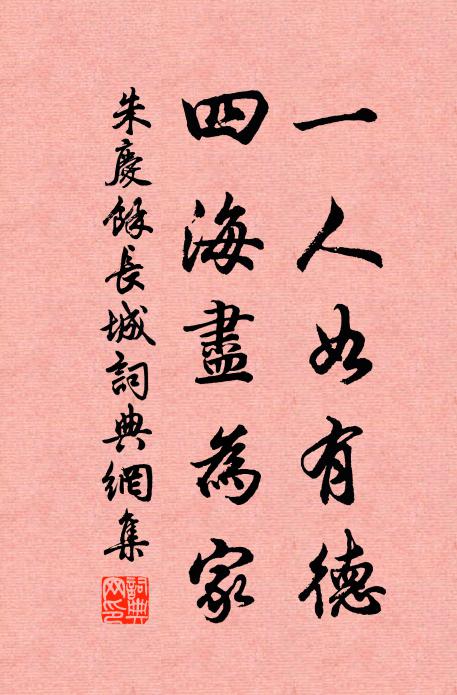 一人如有德
四海盡為家
朱慶餘長城詞典網集
詞典网印